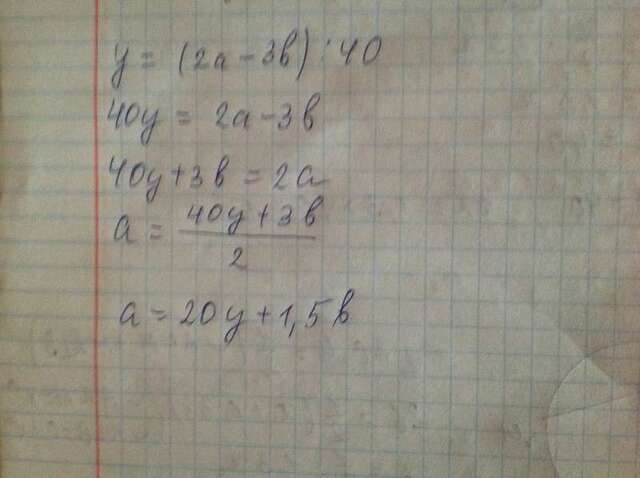 y = (2a - 3b) : 40
40y = 2a - 3b
40y + 3b = 2a
a = \frac{40y + 3b}{2}
a = 20y + 1,5b